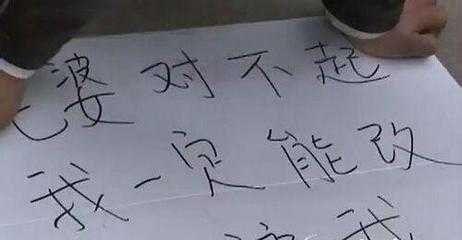 婆对不起
我一定能改
我